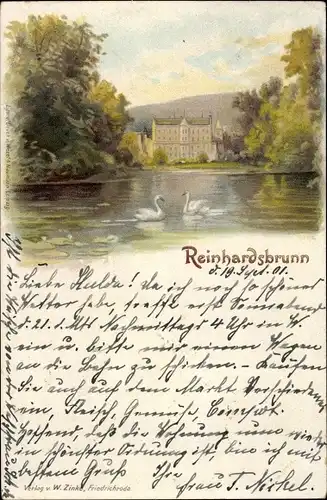 Reinhardsbrunn
d. 19. Sept. 01.
Liebe Hulda! Da ich noch so schönes
Wetter habe, treffe erst Sonnabend
d. 21. d. Mts Nachmittags 4 Uhr in W.
ein u. bitte mir einen Wagen
an die Bahn zu schicken. – Kaufen
Sie auch auf dem Markt Verschiedenes
ein, Fleisch, Gemüse,
Hoffend, daß die Wohnung nun wieder
in schönster Ordnung ist, bin ich mit
bestem Gruß Ihre
Frau T. Nickel.
Verlag v. W. Zink, Friedrichroda